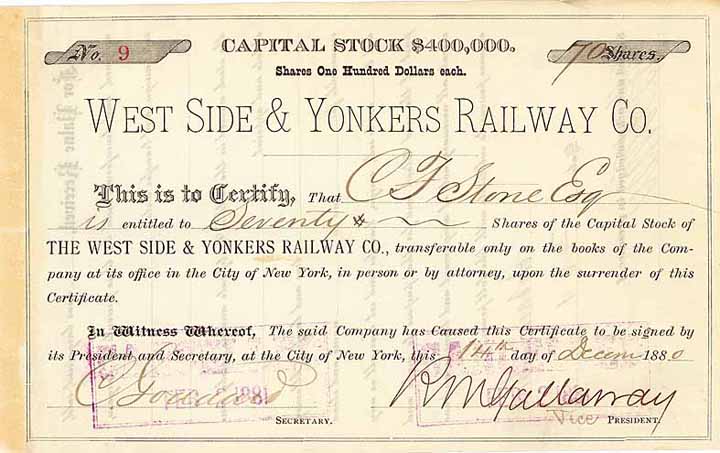 No. 9
CAPITAL STOCK $400,000.
70 Shares.
Shares One Hundred Dollars each.
WEST SIDE & YONKERS RAILWAY CO.
This is to Certify, That C F Stone Esq
is entitled to Seventy Shares of the Capital Stock of
THE WEST SIDE & YONKERS RAILWAY CO., transferable only on the books of the Com-
pany at its office in the City of New York, in person or by attorney, upon the surrender of this
Certificate.
In Witness Whereof, The said Company has Caused this Certificate to be signed by
its President and Secretary, at the City of New York, this 14th day of Decem 1880
R M Gallaway
SECRETARY.
Vice PRESIDENT.